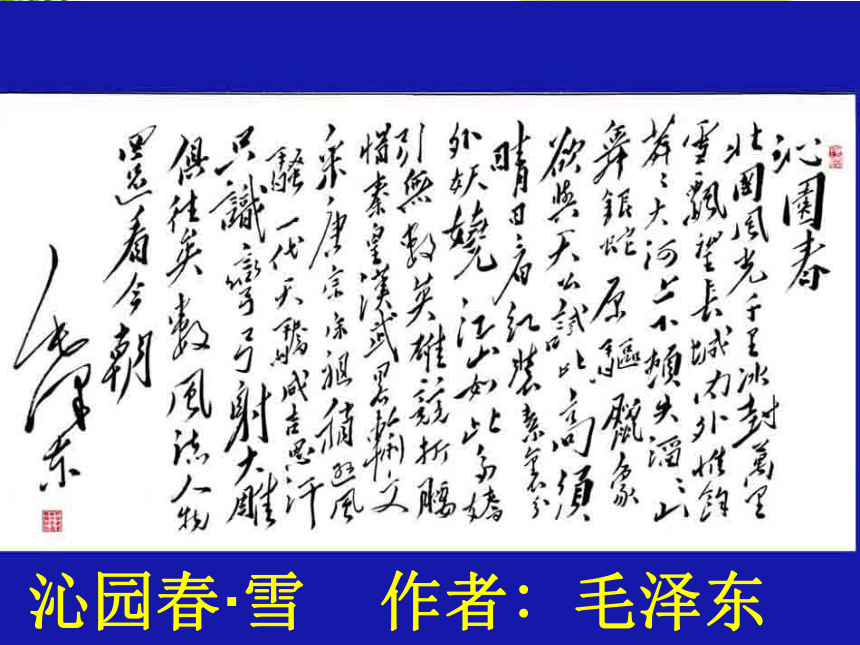 沁園春
北國風光千里冰封萬里
雪飄望長城内外惟餘
莽〻大河上下頓失滔〻山
舞銀蛇原驅臘象
欲與天公試比高須
晴日看紅裝素裹分
外妖嬈江山如此多嬌
引無數英雄競折腰
惜秦皇漢武略輸文
采唐宗宋祖稍遜風
騷一代天驕成吉思汗
只識彎弓射大雕
俱往矣數風流人物
還看今朝
毛澤東
沁园春·雪 作者：毛泽东